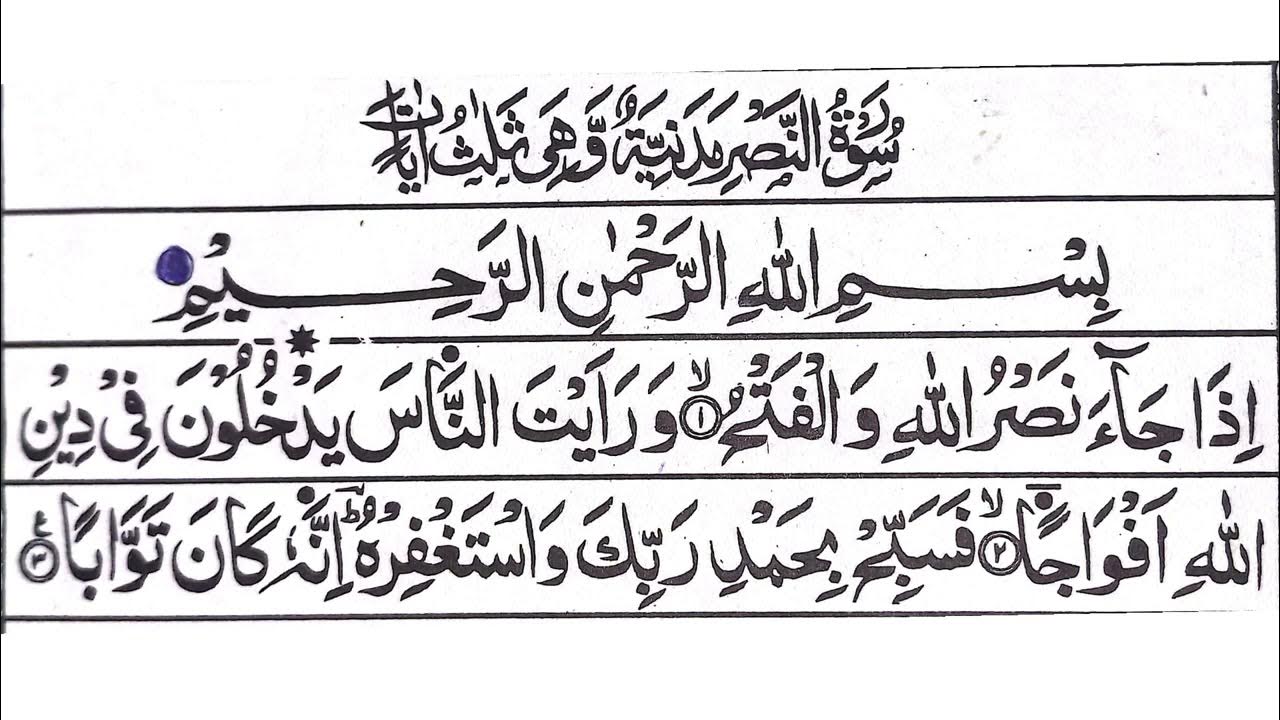 سُوْرَةُ النَّصْرِ مَدَنِيَّةٌ وَّهِيَ ثَلٰثُ اٰيَاتٍ
بِسْمِ اللّٰهِ الرَّحْمٰنِ الرَّحِيْمِ
اِذَا جَآءَ نَصْرُ اللّٰهِ وَالْفَتْحُ ۙ﴿۱﴾ وَرَاَيْتَ النَّاسَ يَدْخُلُوْنَ فِيْ دِيْنِ
اللّٰهِ اَفْوَاجًا ۙ﴿۲﴾ فَسَبِّحْ بِحَمْدِ رَبِّكَ وَاسْتَغْفِرْهُ ؕ اِنَّهٗ كَانَ تَوَّابًا ﴿۳﴾ ع